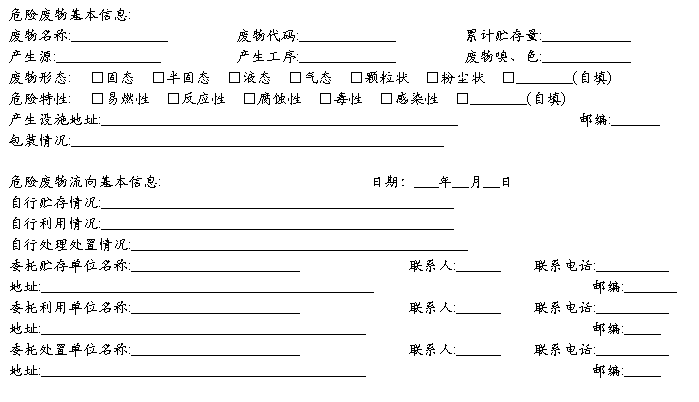 危险废物基本信息:
废物名称:____________ 废物代码:____________ 累计贮存量:____________
产生源:____________ 产生工序:____________ 废物嗅、色:____________
废物形态: □固态 □半固态 □液态 □气态 □颗粒状 □粉尘状 □________(自填)
危险特性: □易燃性 □反应性 □腐蚀性 □毒性 □感染性 □________(自填)
产生设施地址:________________________ 邮编:______
包装情况:________________________
危险废物流向基本信息: 日期: ___年__月__日
自行贮存情况:________________________
自行利用情况:________________________
自行处理处置情况:________________________
委托贮存单位名称:________________ 联系人:______ 联系电话:__________
地址:________________________ 邮编:_______
委托利用单位名称:________________ 联系人:______ 联系电话:__________
地址:________________________ 邮编:_____
委托处置单位名称:________________ 联系人:______ 联系电话:__________
地址:________________________ 邮编:_____